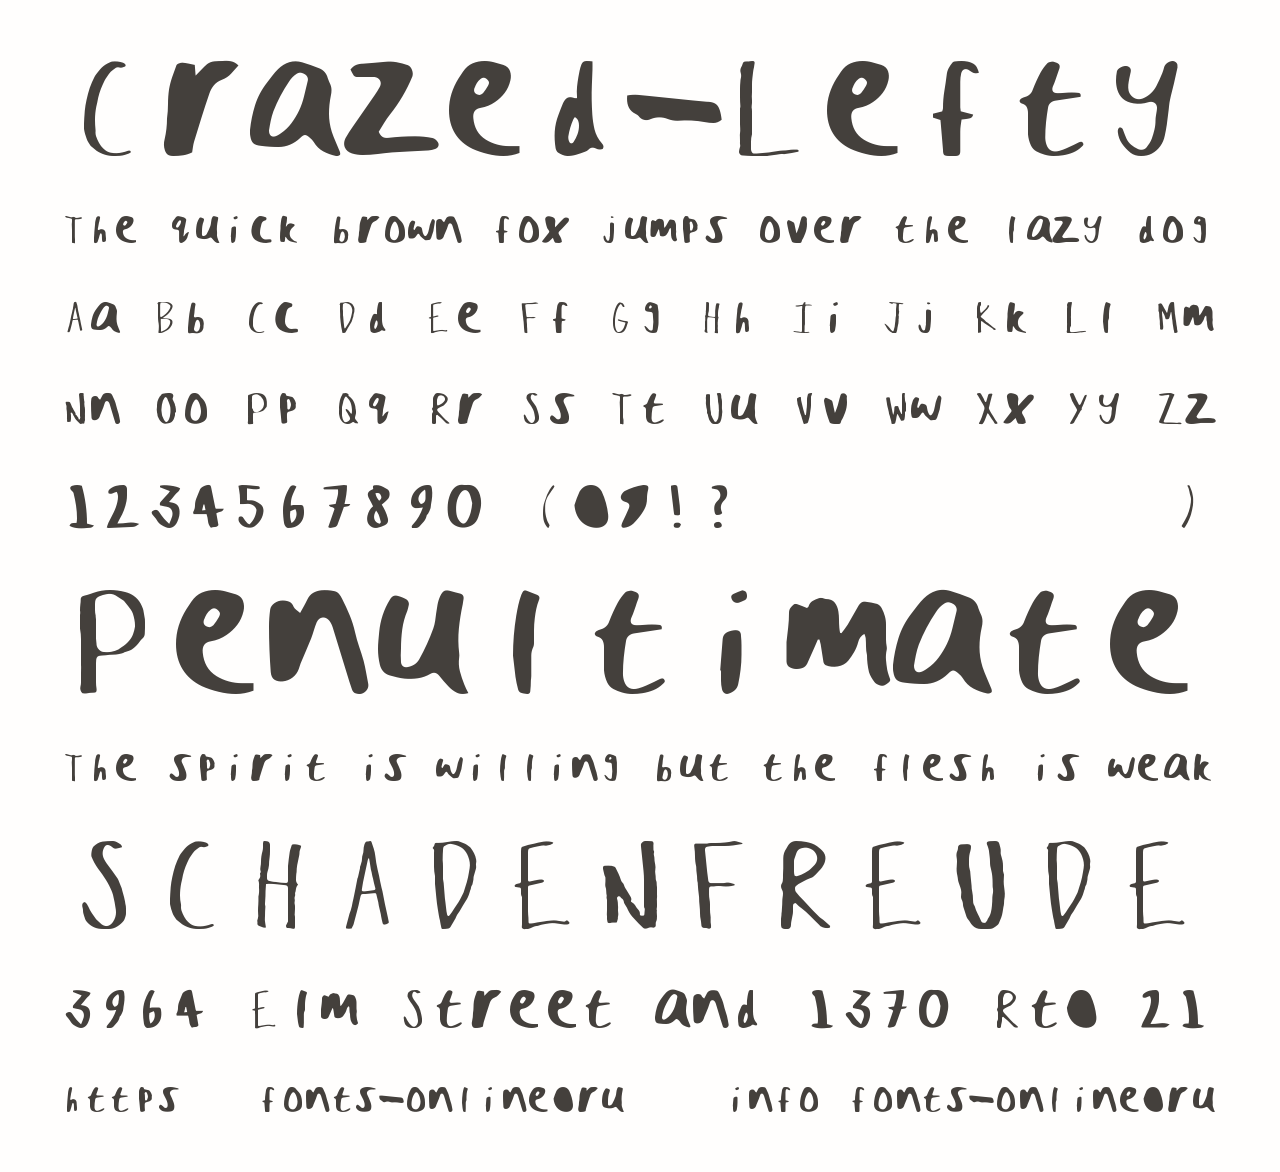 Crazed-Lefty
The quick brown fox jumps over the lazy dog
Aa Bb Cc Dd Ee Ff Gg Hh Ii Jj Kk Ll Mm
Nn Oo Pp Qq Rr Ss Tt Uu Vv Ww Xx Yy Zz
1234567890 (.,!? )
Penultimate
The spirit is willing but the flesh is weak
SCHADENFREUDE
3964 Elm Street and 1370 Rt. 21
https fonts-online.ru info fonts-online.ru